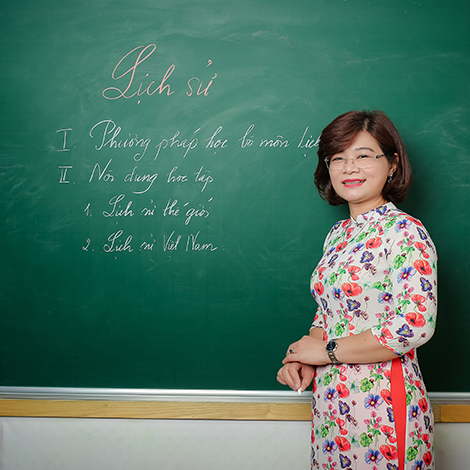 Lịch sử
I. Phương pháp học bộ môn Lịch
II. Nội dung học tập
1. Lịch sử thế giới
2. Lịch sử Việt Nam.